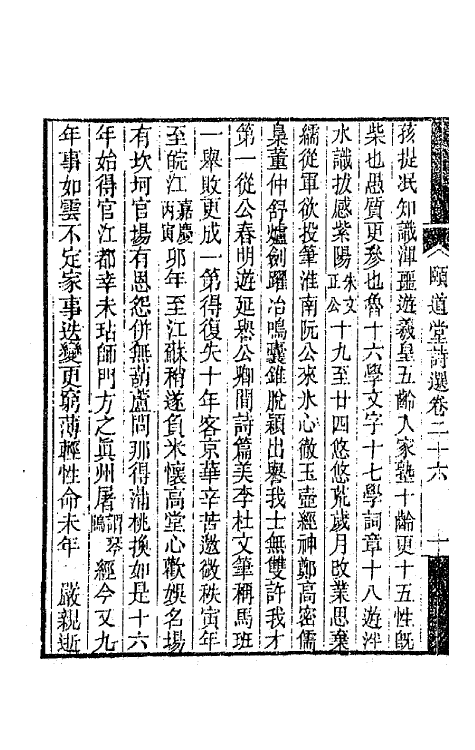 頤道堂詩選卷二十六　一
孩提泯知識渾噩遊羲皇五齡入家塾十齡更十五性既
柴也愚質更參也魯十六學文字十七學詞章十八遊泮
水識拔感紫陽朱文正公十九至廿四悠悠荒歲月改業思棄
繻從軍欲投筆淮南阮公來氷心徹玉壺經神鄭高密儒
臬董仲舒爐劍躍冶鳴囊錐脫穎出譽我士無雙許我才
第一從公春明遊延譽公卿間詩篇美李杜文筆稱馬班
一舉敗更成一第得復失十年客京華辛苦邀微秩寅年
至皖江嘉慶丙寅卯年至江蘇稍遂負米懷高堂心歡娛名場
有坎坷官場有恩怨併無葫蘆問那得蒲桃換如是十六
年始得官江都幸未玷師門方之眞州屠謂琴鴿經今又九
年事如雲不定家事迭變更窮薄輕性命未年　嚴親逝